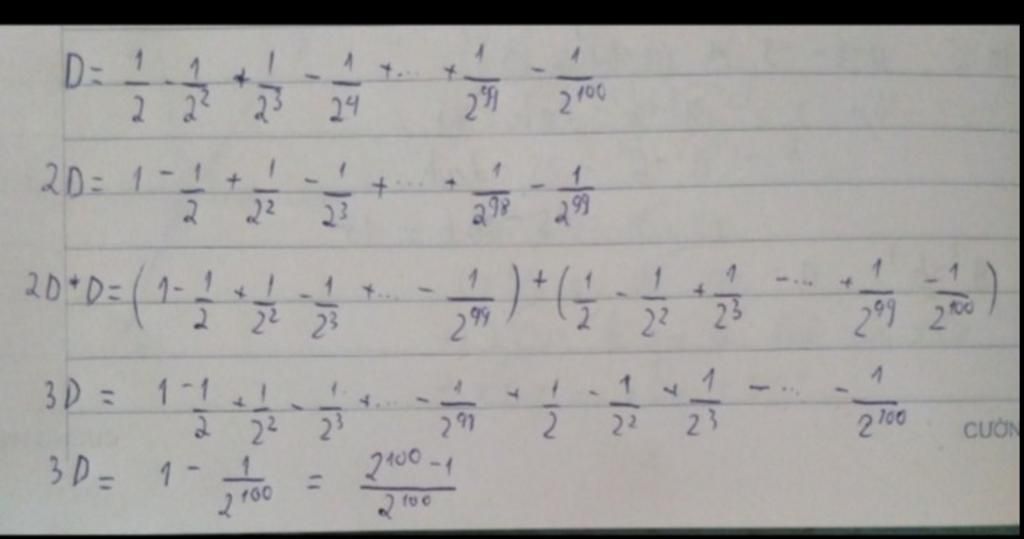 D = 1/2 - 1/2² + 1/2³ - 1/2⁴ + ... + 1/2⁹⁹ - 1/2¹⁰⁰
2D = 1 - 1/2 + 1/2² - 1/2³ + ... + 1/2⁹⁸ - 1/2⁹⁹
2D + D = (1 - 1/2 + 1/2² - 1/2³ + ... - 1/2⁹⁹) + (1/2 - 1/2² + 1/2³ - ... + 1/2⁹⁹ - 1/2¹⁰⁰)
3D = 1 - 1/2 + 1/2² - 1/2³ + ... - 1/2⁹⁹ + 1/2 - 1/2² + 1/2³ - ... - 1/2¹⁰⁰
3D = 1 - 1/2¹⁰⁰ = (2¹⁰⁰ - 1)/2¹⁰⁰